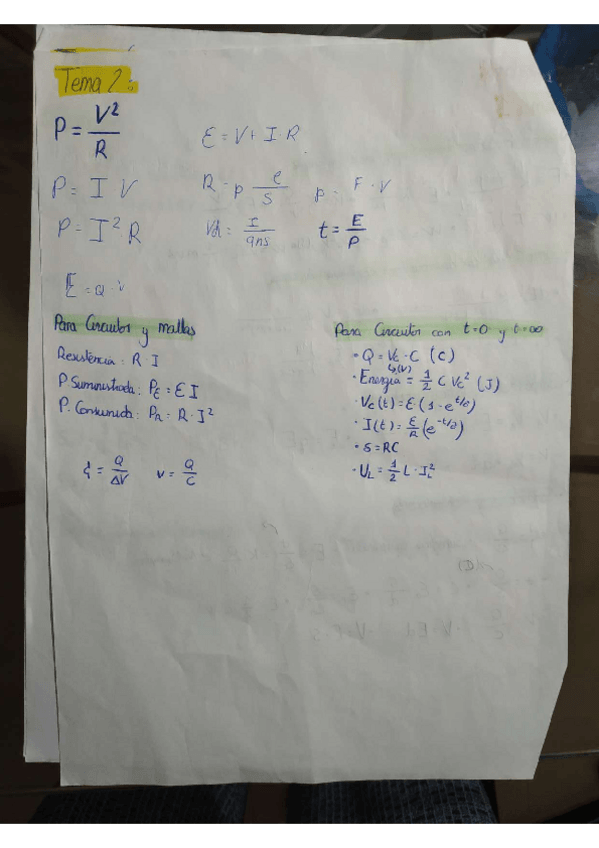 Tema 2:
P = V²/R
E = V + I·R
P = I V
R = ρ l/s
P = F·V
P = I²·R
Vd = I/qns
t = E/P
E = Q·V
Para Circuitos y mallas
Resistència: R I
P Suministrada: P_E = E I
P. Consumida: P_R = R·I²
C = Q/ΔV
V = Q/C
Para Circuitos con t=0 y t=∞
• Q = Vc·C (C)
• Energía = 1/2 C Vc² (J)
• Vc(t) = E(1-e^t/δ)
• I(t) = E/R (e^-t/δ)
• δ = RC
• U_L = 1/2 L·I_L²